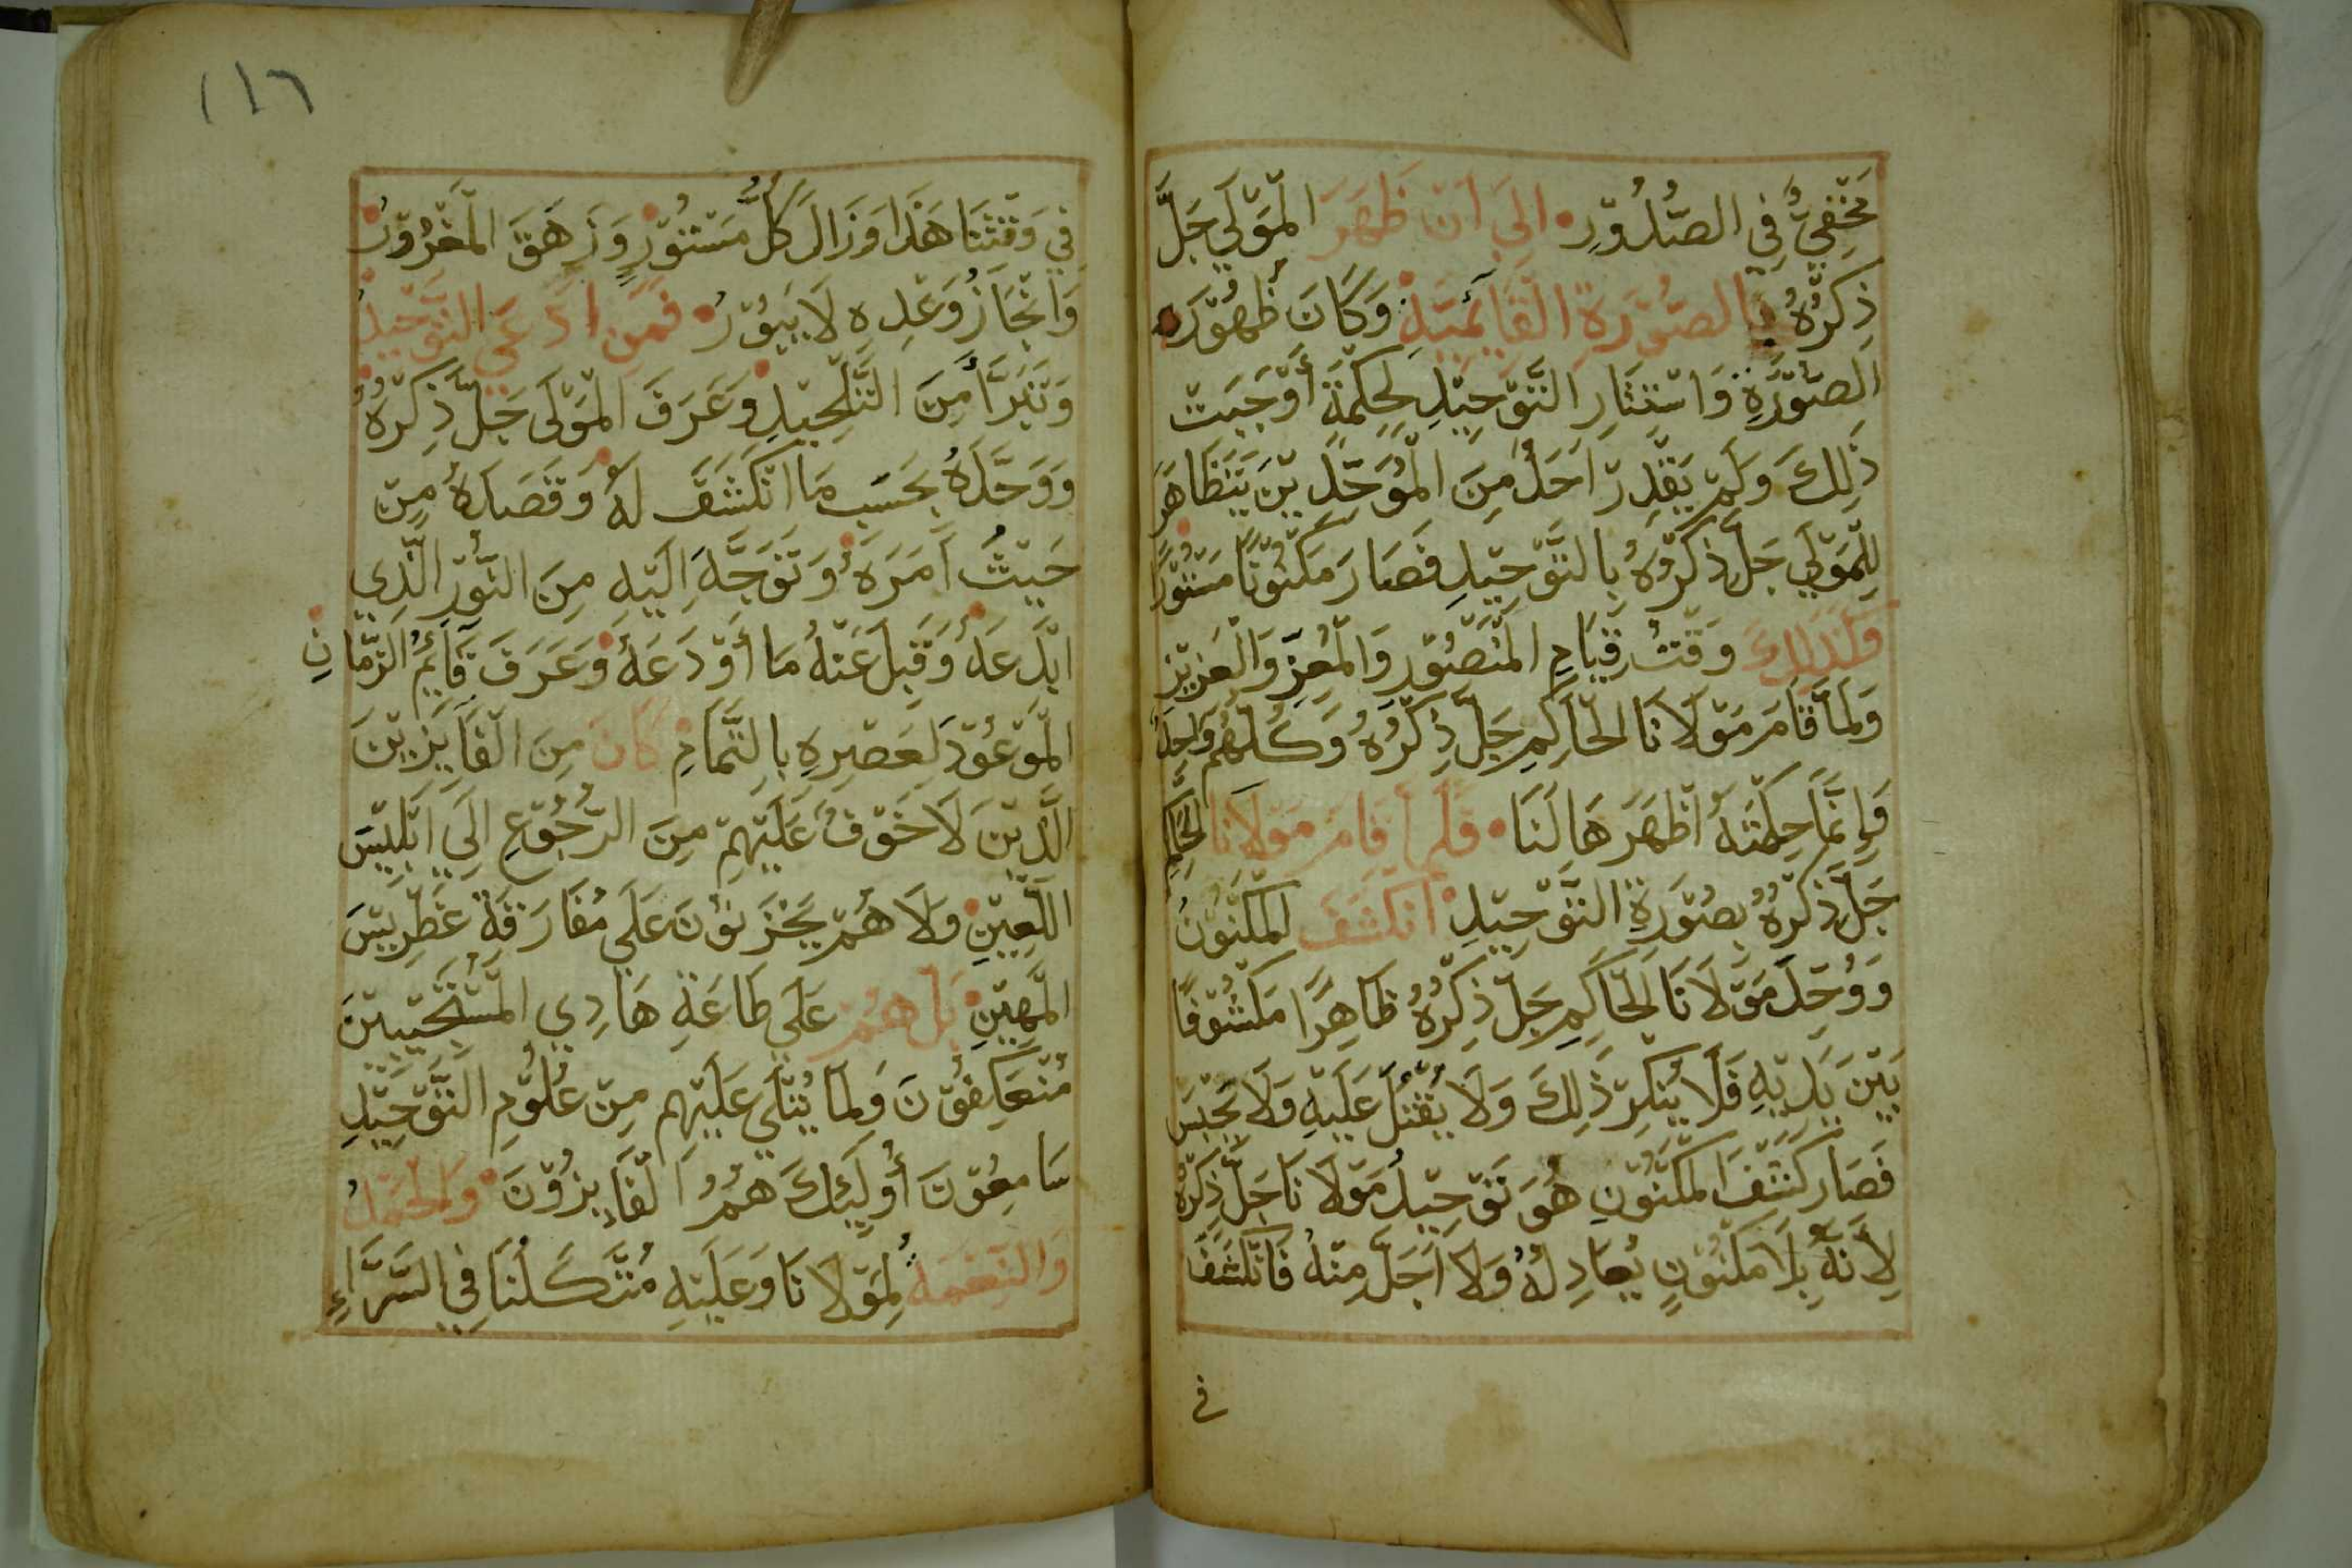 مَخْفِيٌّ فِي الصُّدُوْرِ • اِلَى اَنْ ظَهَرَ الْمَوْلَى جَلَّ
ذِكْرُهُ بِالصُّوْرَةِ الْقَائِمِيَّةِ • وَكَانَ ظُهُوْرَ
الصُّوْرَةِ وَاسْتِتَارِ التَّوْحِيْدِ لِحِكْمَةٍ أَوْجَبَتْ
ذَلِكَ وَلَمْ يَقْدِرْ اَحَدٌ مِنَ الْمُوَحِّدِيْنَ يَتَظَاهَرَ
لِلْمَوْلَى جَلَّ ذِكْرُهُ بِالتَّوْحِيْدِ فَصَارَ مَكْنُوْنًا مَسْتُوْرًا
وَلِذَلِكَ وَقْتُ قِيَامِ الْمَنْصُوْرِ وَالْمُعِزِّ وَالْعَزِيْزِ
وَلَمَّا قَامَ مَوْلَانَا الْحَاكِمِ جَلَّ ذِكْرُهُ وَكُلُّهُمْ وَاحِدٌ
وَاِنَّمَا حِكْمَتَهُ اَظْهَرَهَا لَنَا • فَلَمَّا قَامَ مَوْلَانَا الْحَاكِمِ
جَلَّ ذِكْرُهُ بِصُوْرَةِ التَّوْحِيْدِ • اَنْكَشَفَ الْمَكْنُوْنُ
وَوُحِّدَ مَوْلَانَا الْحَاكِمِ جَلَّ ذِكْرُهُ ظَاهِرًا مَكْشُوْفًا
بَيْنَ يَدَيْهِ فَلَا يُنْكِرْ ذَلِكَ وَلَا يُقْتُلَ عَلَيْهِ وَلَا يَحْبَسَ
فَصَارَ كَشْفَ الْمَكْنُوْنِ هُوَ تَوْحِيْدُ مَوْلَانَا جَلَّ ذِكْرُهُ
لِأَنَّهُ بِلَا مَكْنُوْنٍ يُعَادِلُهُ وَلَا اَجَلَّ مِنْهُ فَانْكَشَفَ
في
١١٦
فِي وَقْتِنَا هَذَا وَزَالَ كُلُّ مَسْتُوْرٍ • وَزَهَقَ الْمَغْرُوْرُ •
وَاِنْجَازُ وَعْدِهِ لَا يَبُوْرُ • فَمَنِ ادَّعَى التَّوْحِيْدَ
وَتَبَرَّأَ مِنَ التَّلْحِيْدِ • وَعَرَفَ الْمَوْلَى جَلَّ ذِكْرُهُ
وَوَحَّدَهُ بِحَسَبِ مَا انْكَشَفَ لَهُ • وَقَصَدَهُ مِنْ
حَيْثُ اَمَرَهُ • وَتَوَجَّهَ اِلَيْهِ مِنَ النُّوْرِ الَّذِي
اَبْدَعَهُ • وَقَبِلَ عَنْهُ مَا أَوْدَعَهُ • وَعَرَفَ قَائِمُ الزَّمَانِ •
الْمَوْعُوْدِ لِعَصْرِهِ بِالتَّمَامِ • كَانَ مِنَ الْفَايِزِيْنَ
الَّذِيْنَ لَا خَوْفٌ عَلَيْهِمْ مِنَ الرُّجُوْعِ اِلَى اِبْلِيْسَ
اللَّعِيْنِ • وَلَا هُمْ يَحْزَنُوْنَ عَلَى مُفَارَقَةِ عَطْرِيْسَ
الْمَهِيْنِ • بَلْ هُمْ عَلَى طَاعَةِ هَادِي الْمُسْتَجِيْبِيْنَ
مُنْعَكِفُوْنَ وَلِمَا يُتْلَى عَلَيْهِمْ مِنْ عُلُوْمِ التَّوْحِيْدِ
سَامِعُوْنَ أُولَئِكَ هُمُ الْفَايِزُوْنَ • وَالْحَمْدُ
وَالنِّعْمَةُ لِمَوْلَانَا وَعَلَيْهِ مُتَّكَلُنَا فِي السَّرَّاءِ